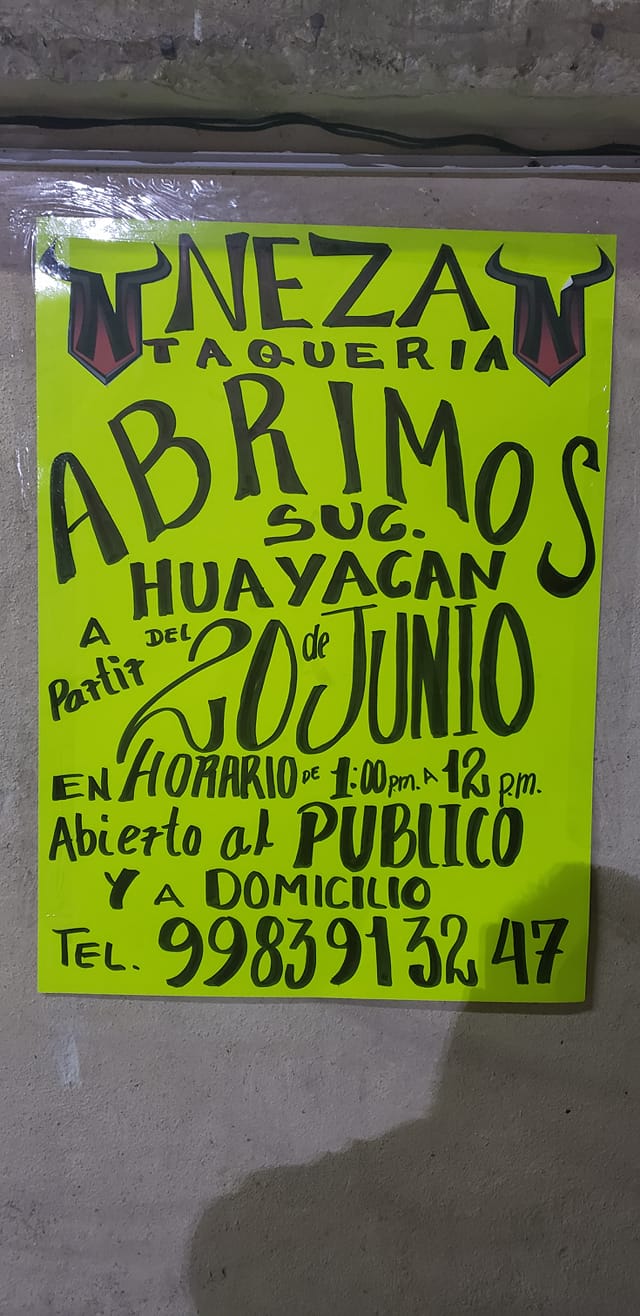 N NEZA N
TAQUERIA
ABRIMOS
SUC.
HUAYACAN
A Partir DEL 20 de JUNIO
EN HORARIO DE 1:00 p.m. A 12 p.m.
Abierto al PUBLICO
Y A DOMICILIO
TEL. 99839132 47